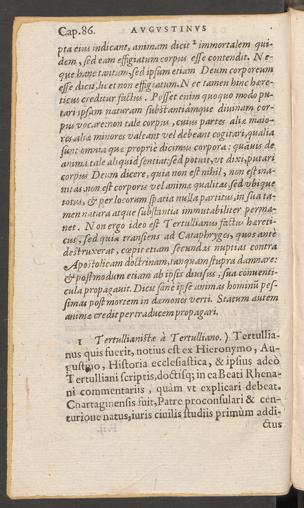 Cap.86. AVGVSTINVS
pta eius indicant, animam dicit ¹ immortalem qui-
dem, sed eam effigiatum corpus esse contendit. N e-
que hanc tantum, sed ipsum etiam Deum corporeum
esse dicit, licet non effigiatum. N ec tamen hinc hære-
ticus creditur factus. Posset enim quoquo modo pu-
tari ipsam naturam substantiámque diuinam cor-
pus vocare: non tale corpus, cuius partes aliæ maio-
res, aliæ minores valeant vel debeant cogitari, qualia
sunt omnia quæ propriè dicimus corpora: quãuis de
anima tale aliquid sentiat: sed potuit, vt dixi, putari
corpus Deum dicere, quia non est nihil, non est ina-
nitas non est corporis vel animæ qualitas sed vbique
totus, & per locorum spatia nulla partitus, in sua ta-
men natura atque substantia immutabiliter perma-
net. N on ergo ideo est Tertullianus factus hæreti-
cus, sed quia transiens ad Cataphryges, quos antè
destruxerat, cœpit etiam secundas nuptias contra
Apostolicam doctrinam, tanquam stupra damnare:
& postmodum etiam ab ipsis diuisus, sua conuenti-
cula propagauit. Dicit sanè ipse animas hominũ pes-
simas post mortem in dæmones verti. Statum autem
animæ credit per traducem propagari.
1 Tertullianistæ à Tertulliano. ) Tertullia-
nus quis fuerit, notius est ex Hieronymo, Au-
gustino, Historia ecclesiastica, & ipsius adeò
Tertulliani scriptis, doctisq; in ea Beati Rhena-
ni commentariis, quàm vt explicari debeat.
Chartaginensis fuit, Patre proconsulari & cen-
turione natus, iuris ciuilis studiis primùm addi-
ctus